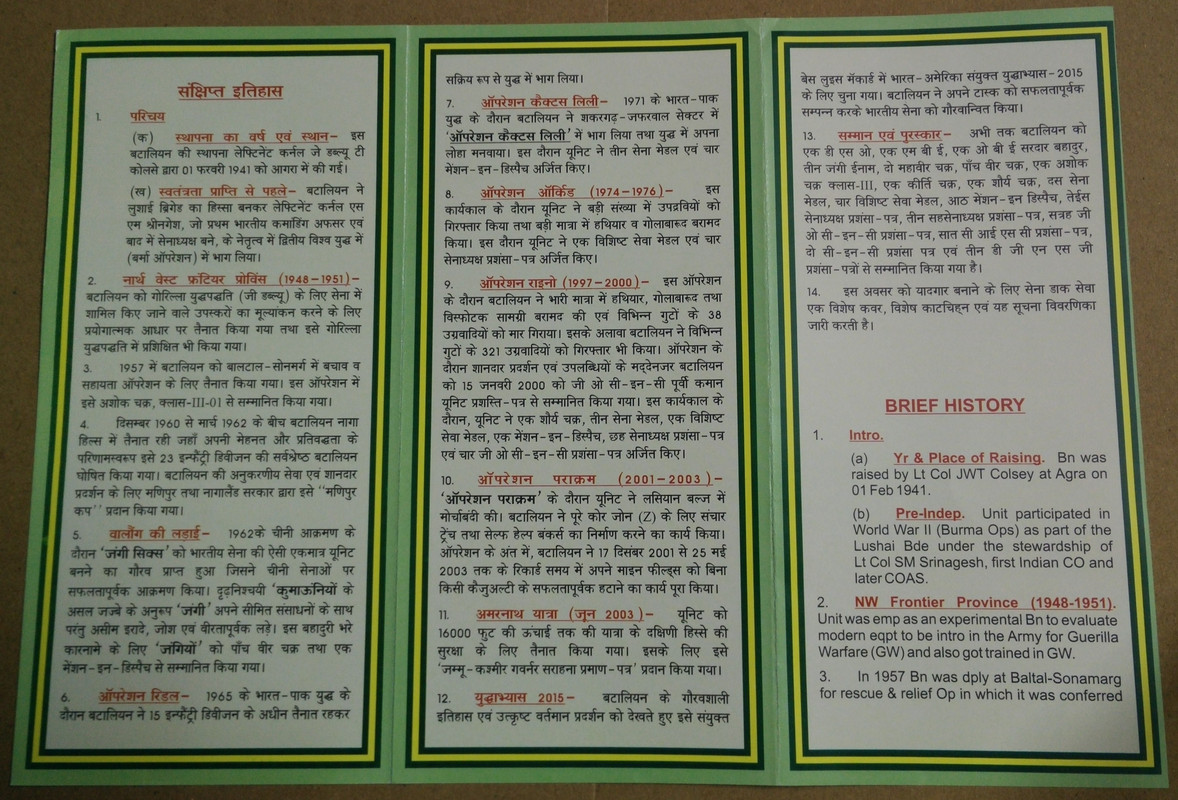 संक्षिप्त इतिहास
1. परिचय
(क) स्थापना का वर्ष एवं स्थान– इस
बटालियन की स्थापना लेफ्टिनेंट कर्नल जे डब्ल्यू टी
कोलसे द्वारा 01 फरवरी 1941 को आगरा में की गई।
(ख) स्वतंत्रता प्राप्ति से पहले– बटालियन ने
लुशाई ब्रिगेड का हिस्सा बनकर लेफ्टिनेंट कर्नल एस
एम श्रीनगेश, जो प्रथम भारतीय कमांडिंग अफसर एवं
बाद में सेनाध्यक्ष बने, के नेतृत्व में द्वितीय विश्व युद्ध में
(बर्मा ऑपरेशन) में भाग लिया।
2. नार्थ वेस्ट फ्रंटियर प्रोविंस (1948–1951)–
बटालियन को गोरिल्ला युद्धपद्धति (जी डब्ल्यू) के लिए सेना में
शामिल किए जाने वाले उपस्करों का मूल्यांकन करने के लिए
प्रयोगात्मक आधार पर तैनात किया गया तथा इसे गोरिल्ला
युद्धपद्धति में प्रशिक्षित भी किया गया।
3. 1957 में बटालियन को बालटाल-सोनमर्ग में बचाव व
सहायता ऑपरेशन के लिए तैनात किया गया। इस ऑपरेशन में
इसे अशोक चक्र, क्लास-III-01 से सम्मानित किया गया।
4. दिसम्बर 1960 से मार्च 1962 के बीच बटालियन नागा
हिल्स में तैनात रही जहाँ अपनी मेहनत और प्रतिबद्धता के
परिणामस्वरूप इसे 23 इन्फैंट्री डिवीजन की सर्वश्रेष्ठ बटालियन
घोषित किया गया। बटालियन की अनुकरणीय सेवा एवं शानदार
प्रदर्शन के लिए मणिपुर तथा नागालैंड सरकार द्वारा इसे "मणिपुर
कप" प्रदान किया गया।
5. वालौंग की लड़ाई– 1962के चीनी आक्रमण के
दौरान 'जंगी सिक्स' को भारतीय सेना की ऐसी एकमात्र यूनिट
बनने का गौरव प्राप्त हुआ जिसने चीनी सेनाओं पर
सफलतापूर्वक आक्रमण किया। दृढ़निश्चयी 'कुमाऊंनियों के
असल जज्बे के अनुरूप 'जंगी' अपने सीमित संसाधनों के साथ
परंतु असीम इरादे, जोश एवं वीरतापूर्वक लड़े। इस बहादुरी भरे
कारनामे के लिए 'जंगियों' को पाँच वीर चक्र तथा एक
मेंशन-इन-डिस्पैच से सम्मानित किया गया।
6. ऑपरेशन रिडल– 1965 के भारत-पाक युद्ध के
दौरान बटालियन ने 15 इन्फैंट्री डिवीजन के अधीन तैनात रहकर
सक्रिय रूप से युद्ध में भाग लिया।
7. ऑपरेशन कैक्टस लिली– 1971 के भारत-पाक
युद्ध के दौरान बटालियन ने शकरगढ़-जफरवाल सेक्टर में
'ऑपरेशन कैक्टस लिली' में भाग लिया तथा युद्ध में अपना
लोहा मनवाया। इस दौरान यूनिट ने तीन सेना मेडल एवं चार
मेंशन-इन-डिस्पैच अर्जित किए।
8. ऑपरेशन ऑर्किड (1974–1976)– इस
कार्यकाल के दौरान यूनिट ने बड़ी संख्या में उपद्रवियों को
गिरफ्तार किया तथा बड़ी मात्रा में हथियार व गोलाबारूद बरामद
किया। इस दौरान यूनिट ने एक विशिष्ट सेवा मेडल एवं चार
सेनाध्यक्ष प्रशंसा-पत्र अर्जित किए।
9. ऑपरेशन राइनो (1997–2000)– इस ऑपरेशन
के दौरान बटालियन ने भारी मात्रा में हथियार, गोलाबारूद तथा
विस्फोटक सामग्री बरामद की एवं विभिन्न गुटों के 38
उग्रवादियों को मार गिराया। इसके अलावा बटालियन ने विभिन्न
गुटों के 321 उग्रवादियों को गिरफ्तार भी किया। ऑपरेशन के
दौरान शानदार प्रदर्शन एवं उपलब्धियों के मद्देनजर बटालियन
को 15 जनवरी 2000 को जी ओ सी-इन-सी पूर्वी कमान
यूनिट प्रशस्ति-पत्र से सम्मानित किया गया। इस कार्यकाल के
दौरान, यूनिट ने एक शौर्य चक्र, तीन सेना मेडल, एक विशिष्ट
सेवा मेडल, एक मेंशन-इन-डिस्पैच, छह सेनाध्यक्ष प्रशंसा-पत्र
एवं चार जी ओ सी-इन-सी प्रशंसा-पत्र अर्जित किए।
10. ऑपरेशन पराक्रम (2001–2003)–
'ऑपरेशन पराक्रम' के दौरान यूनिट ने लसियान बल्ज में
मोर्चाबंदी की। बटालियन ने पूरे कोर जोन (Z) के लिए संचार
ट्रेंच तथा सेल्फ हेल्प बंकर्स का निर्माण करने का कार्य किया।
ऑपरेशन के अंत में, बटालियन ने 17 दिसंबर 2001 से 25 मई
2003 तक के रिकार्ड समय में अपने माइन फील्ड्स को बिना
किसी कैजुअल्टी के सफलतापूर्वक हटाने का कार्य पूरा किया।
11. अमरनाथ यात्रा (जून 2003)– यूनिट को
16000 फुट की ऊंचाई तक की यात्रा के दक्षिणी हिस्से की
सुरक्षा के लिए तैनात किया गया। इसके लिए इसे
'जम्मू-कश्मीर गवर्नर सराहना प्रमाण-पत्र' प्रदान किया गया।
12. युद्धाभ्यास 2015– बटालियन के गौरवशाली
इतिहास एवं उत्कृष्ट वर्तमान प्रदर्शन को देखते हुए इसे संयुक्त
बेस लुइस मॅकार्ड में भारत-अमेरिका संयुक्त युद्धाभ्यास-2015
के लिए चुना गया। बटालियन ने अपने टास्क को सफलतापूर्वक
सम्पन्न करके भारतीय सेना को गौरवान्वित किया।
13. सम्मान एवं पुरस्कार– अभी तक बटालियन को
एक डी एस ओ, एक एम बी ई, एक ओ बी ई सरदार बहादुर,
तीन जंगी ईनाम, दो महावीर चक्र, पाँच वीर चक्र, एक अशोक
चक्र क्लास-III, एक कीर्ति चक्र, एक शौर्य चक्र, दस सेना
मेडल, चार विशिष्ट सेवा मेडल, आठ मेंशन-इन डिस्पैच, तेईस
सेनाध्यक्ष प्रशंसा-पत्र, तीन सहसेनाध्यक्ष प्रशंसा-पत्र, सत्रह जी
ओ सी-इन-सी प्रशंसा-पत्र, सात सी आई एस सी प्रशंसा-पत्र,
दो सी-इन-सी प्रशंसा पत्र एवं तीन डी जी एन एस जी
प्रशंसा-पत्रों से सम्मानित किया गया है।
14. इस अवसर को यादगार बनाने के लिए सेना डाक सेवा
एक विशेष कवर, विशेष काटचिह्न एवं यह सूचना विवरणिका
जारी करती है।
BRIEF HISTORY
1. Intro.
(a) Yr & Place of Raising. Bn was
raised by Lt Col JWT Colsey at Agra on
01 Feb 1941.
(b) Pre-Indep. Unit participated in
World War II (Burma Ops) as part of the
Lushai Bde under the stewardship of
Lt Col SM Srinagesh, first Indian CO and
later COAS.
2. NW Frontier Province (1948-1951).
Unit was emp as an experimental Bn to evaluate
modern eqpt to be intro in the Army for Guerilla
Warfare (GW) and also got trained in GW.
3. In 1957 Bn was dply at Baltal-Sonamarg
for rescue & relief Op in which it was conferred